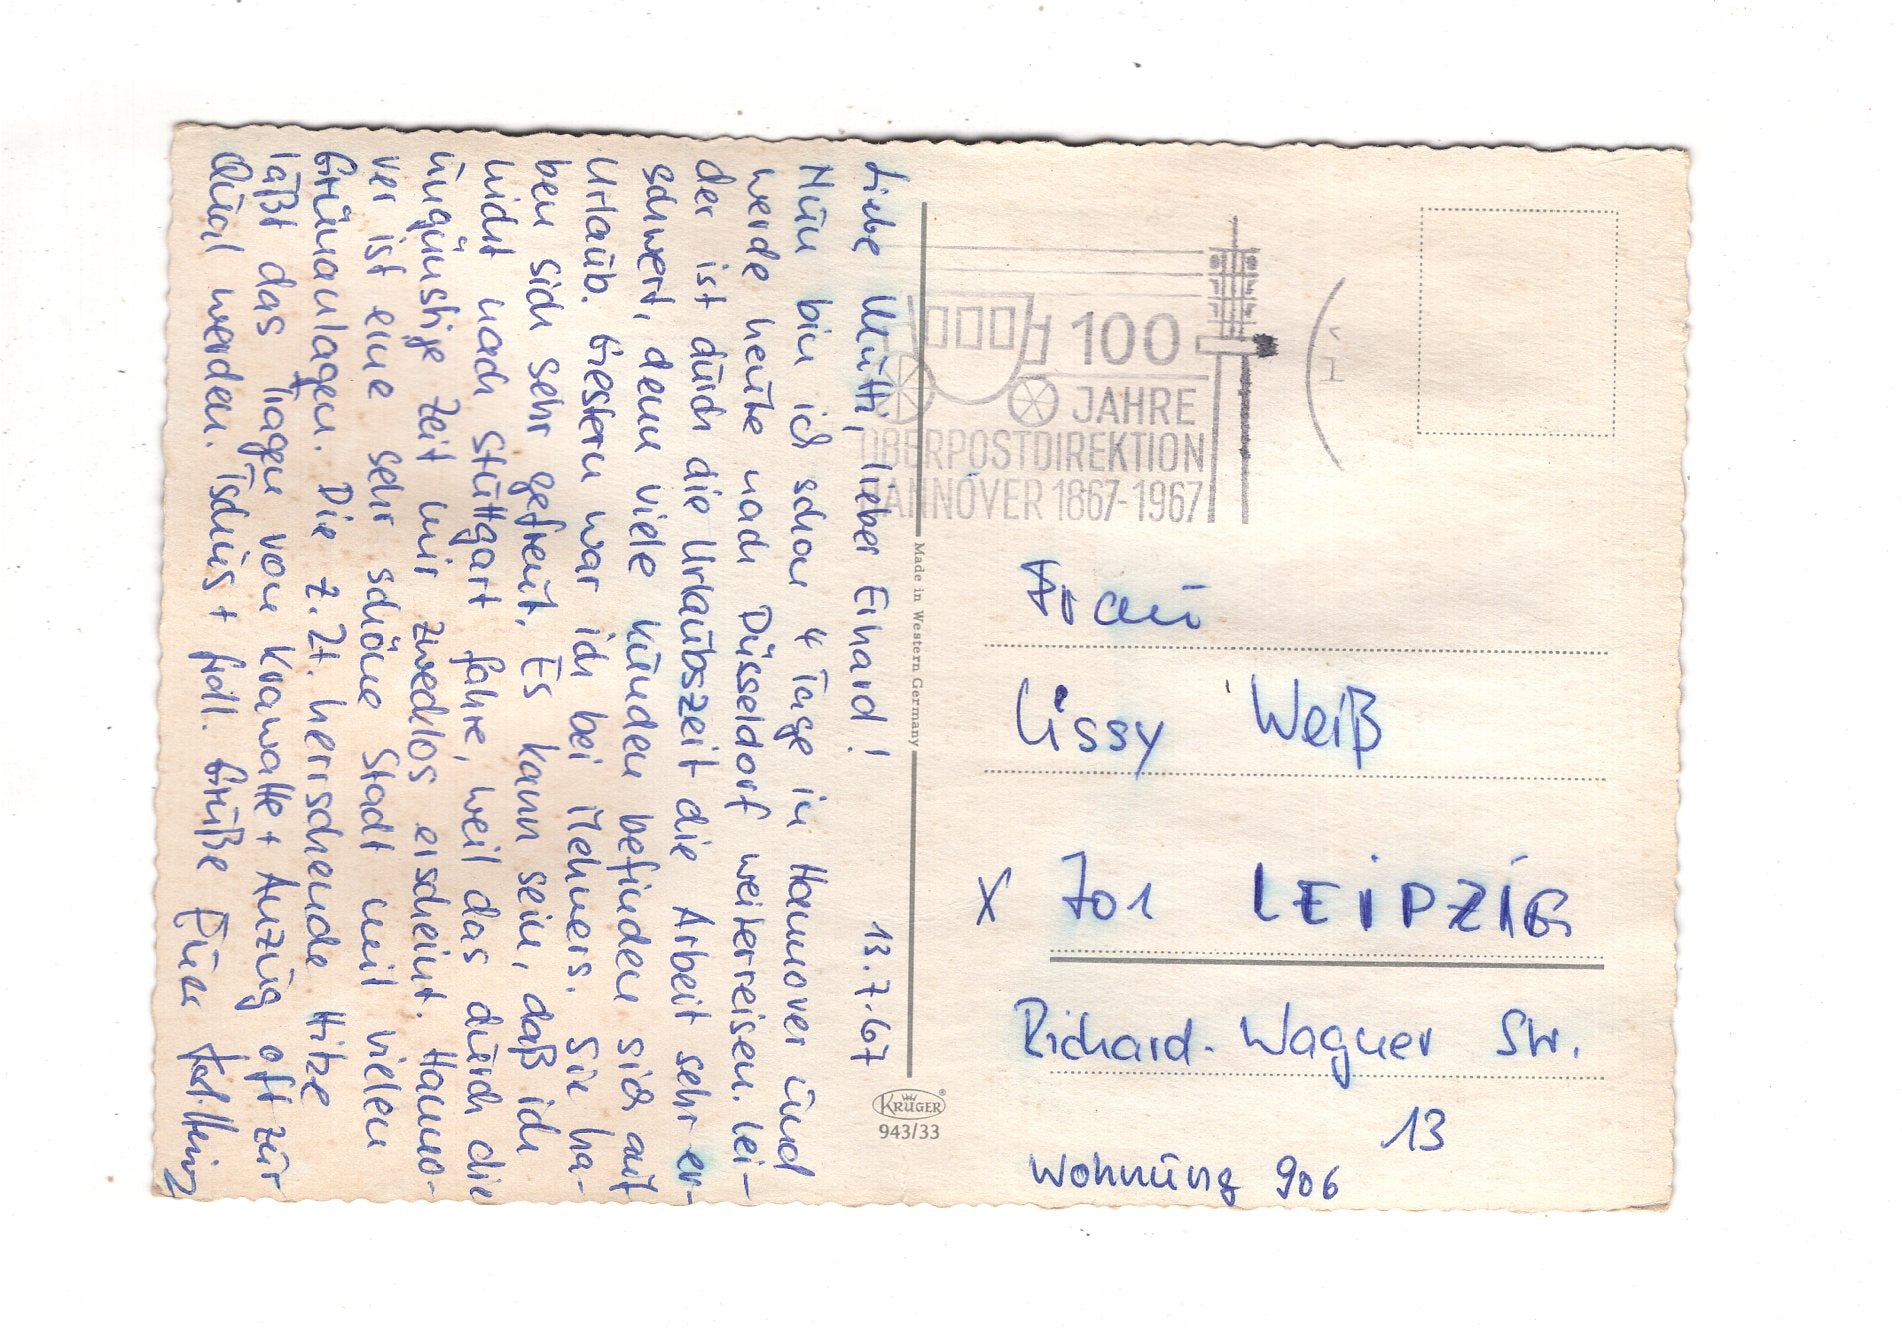 Liebe Mutti, lieber Erhard!
13.7.67
Nun bin ich schon 4 Tage in Hannover und
werde heute nach Düsseldorf weiterreisen. Lei-
der ist durch die Urlaubszeit die Arbeit sehr er-
schwert, denn viele Kunden befinden sich auf
Urlaub. Gestern war ich bei Mehners. Sie ha-
ben sich sehr gefreut. Es kann sein, daß ich
nicht nach Stuttgart fahre, weil das durch die
ungünstige Zeit mir zwecklos erscheint. Hanno-
ver ist eine sehr schöne Stadt mit vielen
Grünanlagen. Die z. Zt. herrschende Hitze
läßt das Tragen von Krawatte + Anzug oft zur
Qual werden. Tschüs + frdl. Grüße Euer Karl-Heinz
100
JAHRE
OBERPOSTDIREKTION
HANNOVER 1867-1967
Made in Western Germany
KRÜGER®
943/33
Frau
Lissy Weiß
X 701 LEIPZIG
Richard-Wagner Str.
13
Wohnung 906